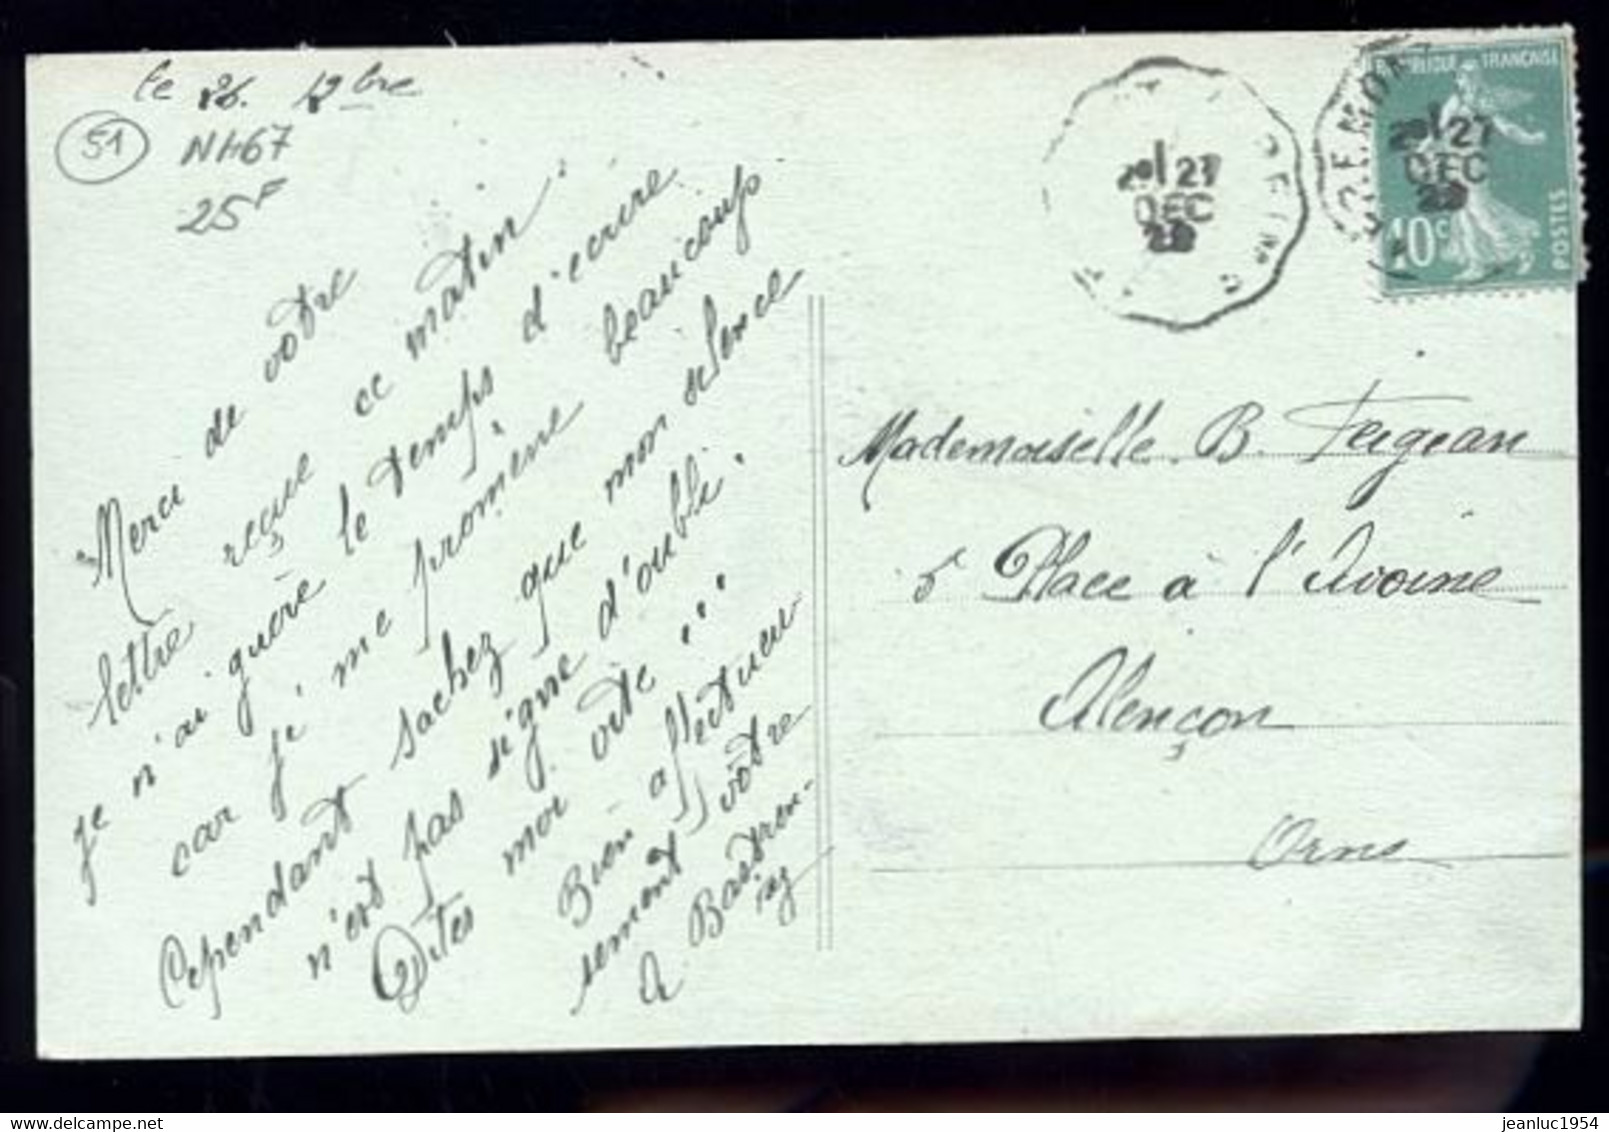 le 26. 12bre
51
NH67
25F
Merci de votre
lettre reçue ce matin
je n'ai guère le temps d'ecrire
car je me promène beaucoup
Cependant sachez que mon silence
n'est pas signe d'oubli.
Dites moi vite !!!
Bien affectueu
sement votre
A Bastren-
2º 27
DEC
REPUBLIQUE FRANÇAISE
2º 27
DEC
10c
POSTES
Mademoiselle. B. Feigean
5 Place à l'Avoine
Alençon
Orne
jeanluc1954